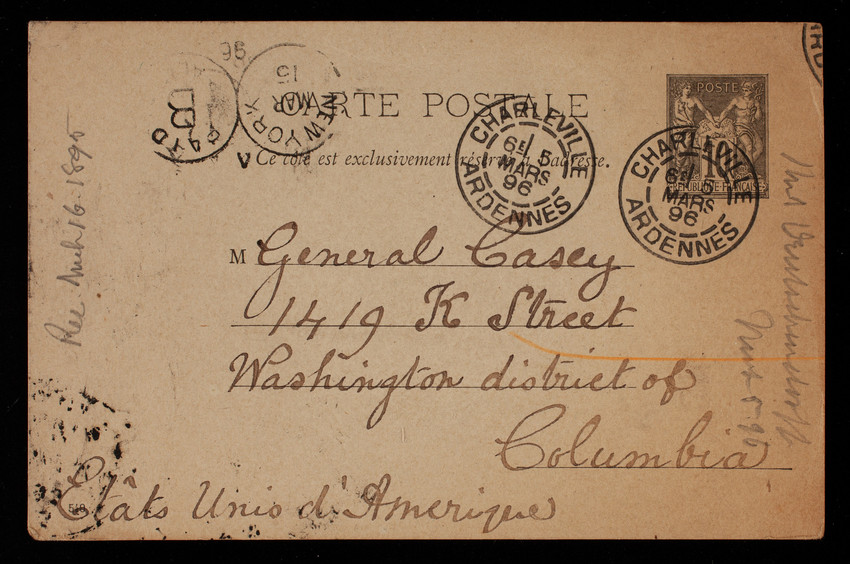 CARTE POSTALE
Ce côté est exclusivement réservé à l'adresse.
POSTE
10
REPUBLIQUE FRANÇAISE
CHARLEVILLE
6E 5
MARS
96
ARDENNES
CHARLEVILLE
6E 5
MARS
96
ARDENNES
NEW YORK
MAR
15
96
PAID
B
M General Casey
1419 K Street
Washington district of
Columbia
Etâts Unis d'Amerique
Rec March 16. 1895